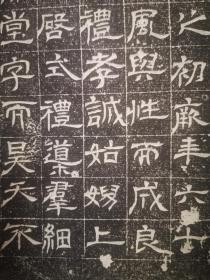 之初廠年六十
風與性而成良
禮孝誠姑嫂上
啓式禮導羣細
堂字而昊天不